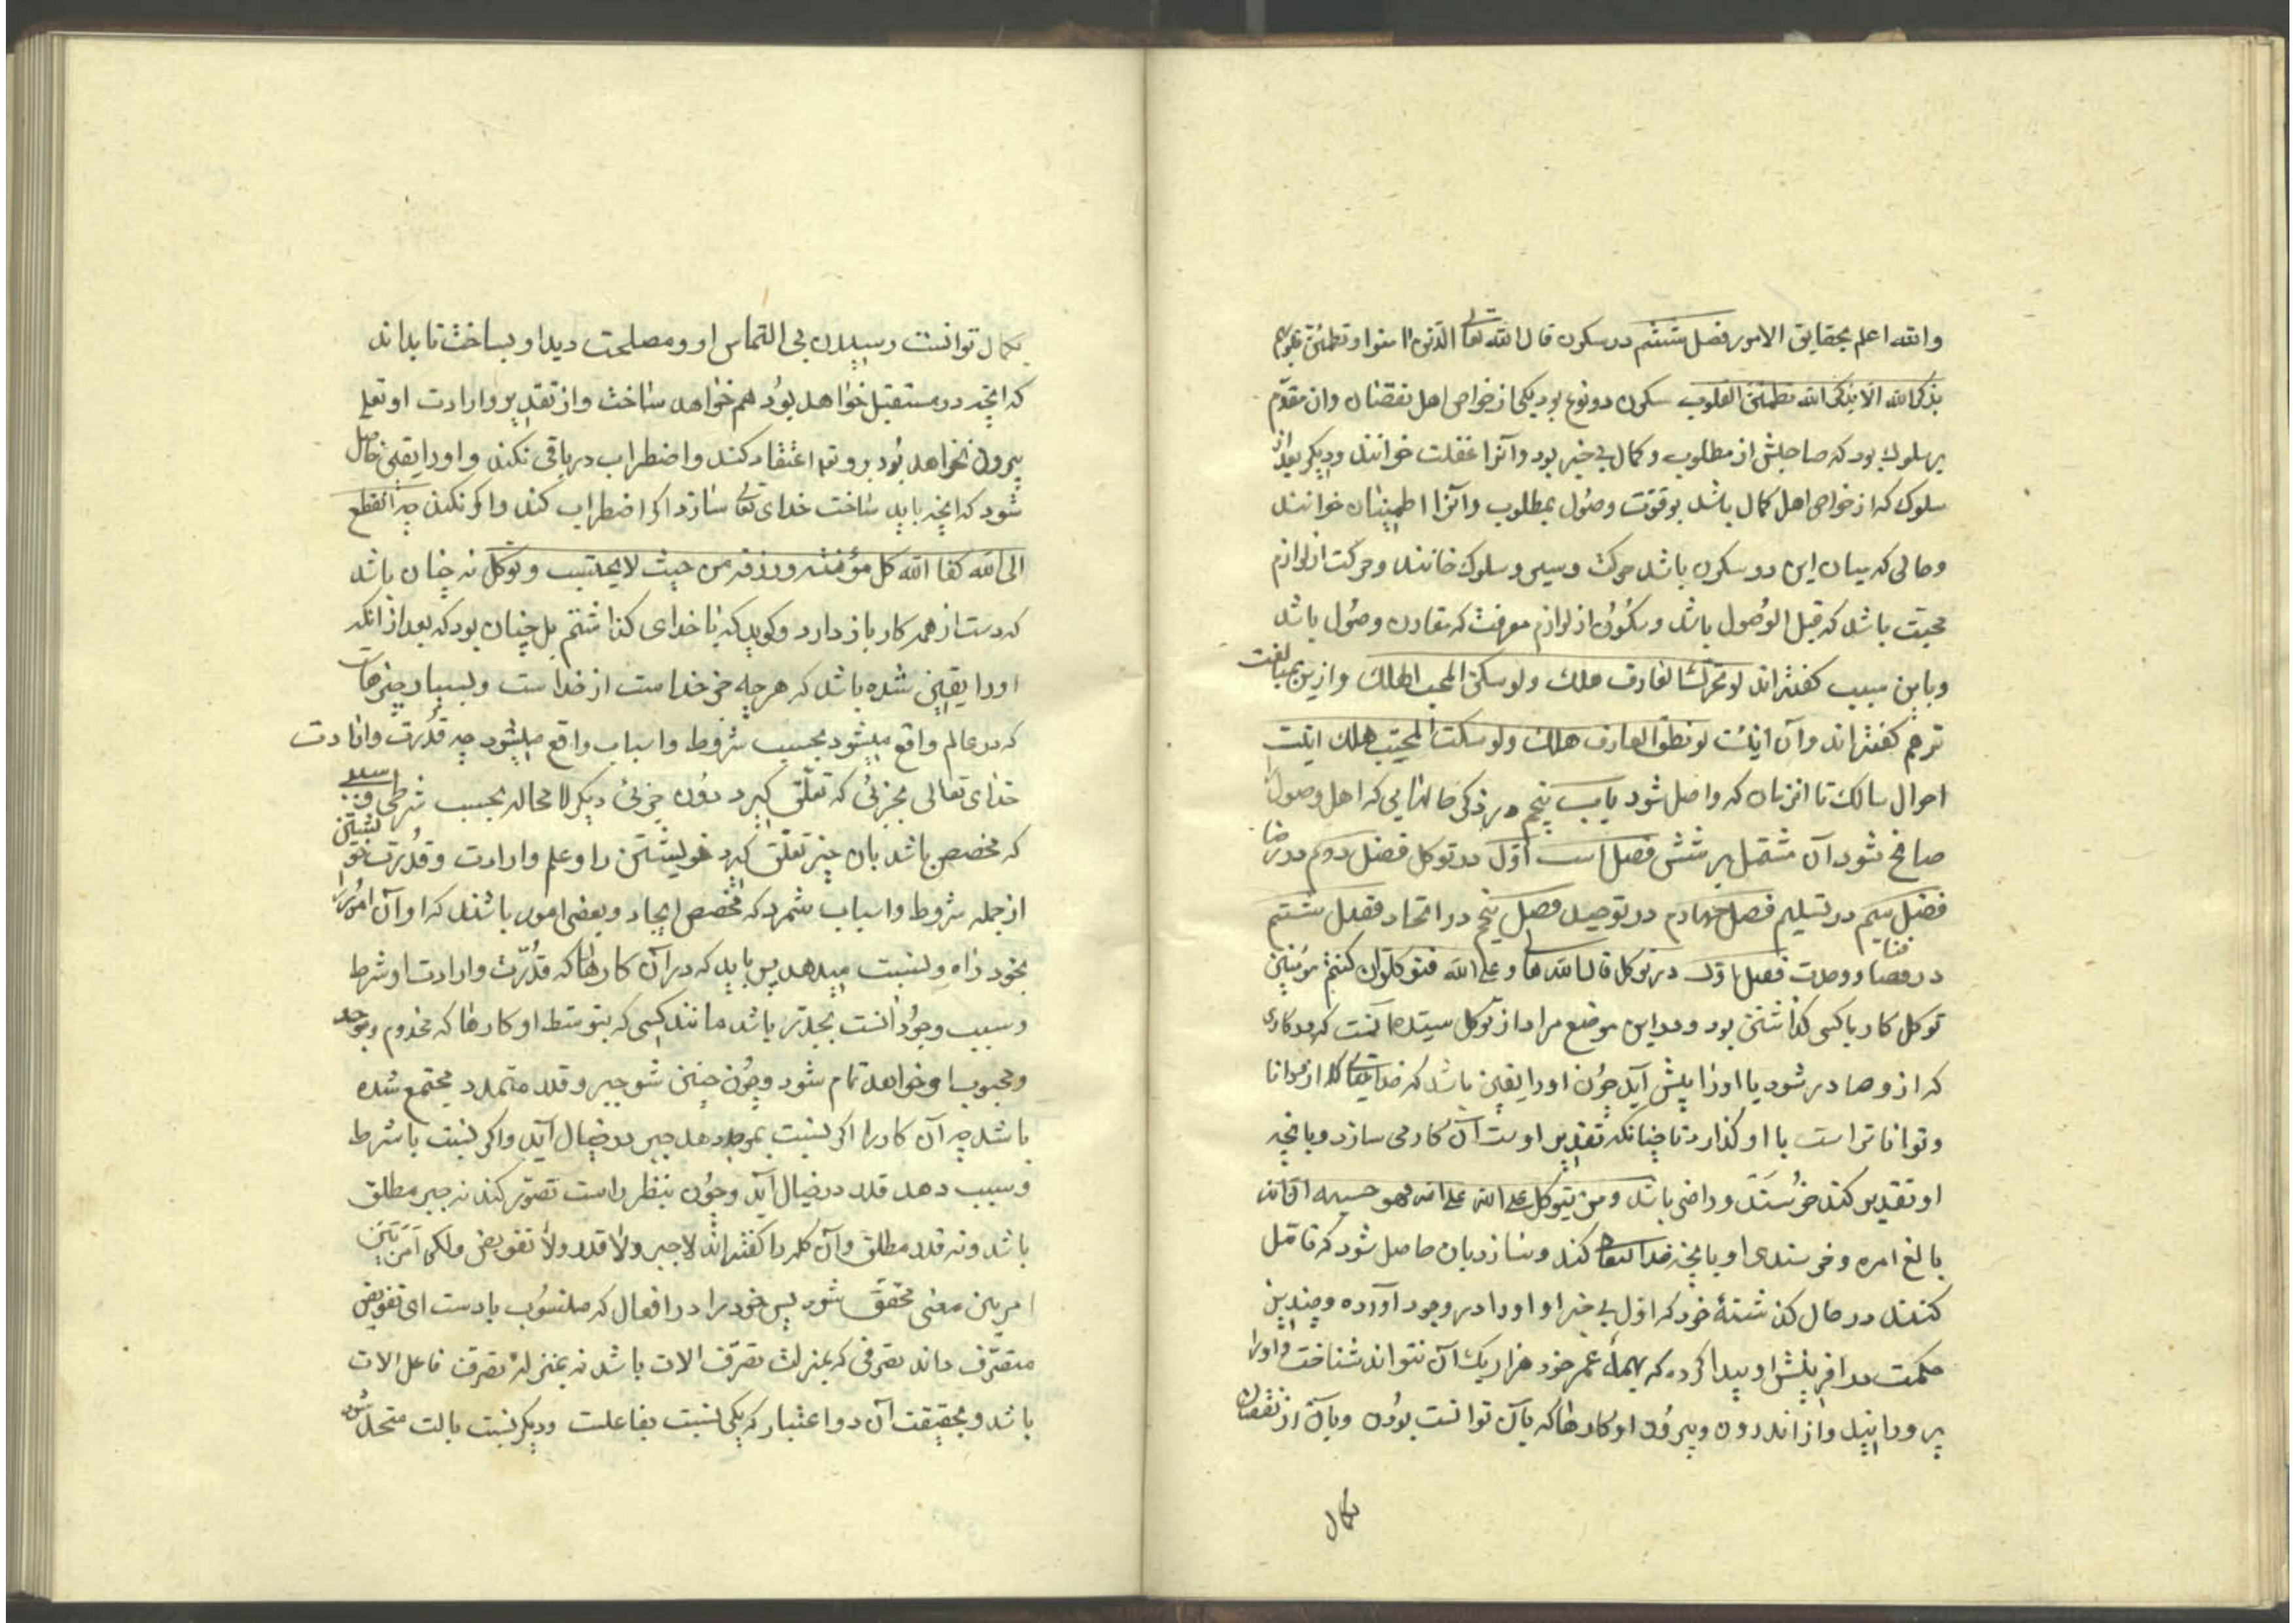 والله اعلم بحقایق الامور فصل ششم در سکون قال الله تعالی الذین امنوا و تطمئن قلوبهم
بذکر الله الا بذکر الله تطمئن القلوب سکون دو نوع بود یکی از خواص اهل نقصان وان مقدم
بر سلوک بود که صاحبش از مطلوب و کمال بی خبر بود وآنرا غفلت خوانند ودیکر بعد از
سلوک که از خواص اهل کمال باشد بوقوت وصول بمطلوب وآنرا اطمینان خوانند
وحالی که میان این دو سکون باشد حرکت وسیر وسلوک خانند وحرکت از لوازم
محبت باشد که قبل الوصول باشد وسکون از لوازم معرفت که مقارن وصول باشد
وباین سبب کفته اند لو تحرک العارف هلک ولو سکن المحب لهلک وازین بمبالغت
ترهم کفته اند وآن اینست لو نطق العارف هلک ولو سکت المحب هلک اینست
احوال سالک تا انزمان که واصل شود باب پنجم در ذکر حالهایی که اهل وصول را
صانح شود آن مشتمل بر شش فصل است اول در توکل فصل دوم در رضا
فصل سیم در تسلیم فصل چهارم در توحید فصل پنجم در اتحاد فصل ششم
در فنا ووحدت فصل اول در توکل قال الله تعالی وعلی الله فتوکلوا ان کنتم مؤمنین
توکل کار با کسی کذاشتن بود ودر این موضع مراد از توکل بنده آنست که در کاری
که ازو صادر شود یا اورا پیش آید چون اورا یقین باشد که خدای تعالی ازو دانا
وتوانا تر است با او کذارد تا چنانکه تقدیر اوست آن کار می سازد وبانچه
او تقدیر کند خرسند وراضی باشد ومن یتوکل علی الله فهو حسبه ان الله
بالغ امره وخرسندی او بانچه خدا تعالی کند وسازد بان حاصل شود که تامل
کند در حال کذشتهٔ خود که اول بی خبر او اورا در وجود آورده وچندین
حکمت در افرینش او پیدا کرده که بهمهٔ عمر خود هزار یک آن نتواند شناخت واورا
پرورانید واز اندرون وبیرون او کارها که بآن توانست بودن وبآن از نقصان
بکمال
بکمال توانست رسیدن بی التماس او ومصلحت دید او بساخت تا بداند
که انچه در مستقبل خواهد بود هم خواهد ساخت واز تقدیر وارادت او تعالی
بیرون نخواهد بود بر وتعا اعتقاد کند واضطراب در باقی نکند واورا یقین حاصل
شود که انچه باید ساخت خدای تعالی سازد اکر اضطراب کند واکر نکند من انقطع
الی الله کفا الله کل مؤنته ورزقه من حیث لا یحتسب وتوکل نه چنان باشد
که دست از همه کار باز دارد وکوید که با خدای کذاشتم بل چنان بود که بعد از انکه
اورا یقین شده باشد که هر چه جز خداست از خداست وبسیار چیزهاست
که در عالم واقع میشود بحسب شروط واسباب واقع میشود چه قدرت وارادت
خدای تعالی بچیزی که تعلق کیرد دون چیزی دیکر لا محاله بحسب شرطی وسببی
که مخصص باشد بان چیز تعلق کیرد خویشتن را وعلم وارادت وقدرت خویشتن
از جمله شروط واسباب شمرد که مخصص ایجاد وبعضی امور باشند که او آن امور را
بخود راه ونسبت میدهد پس باید که در آن کارها که قدرت وارادت او شرط
وسبب وجود انست بجدتر باشد مانند کسی که بتوسط او کارها که مخدوم وموجد
ومحبوب او خواهد تمام شود وچون چنین شود جبر وقدر متحد ومجتمع شده
باشد چه آن کار را اکر نسبت بموجد دهد جبر در خیال آید واکر نسبت با شرط
وسبب دهد قدر در خیال آید وچون بنظر راست تصور کند نه جبر مطلق
باشد ونه قدر مطلق وآن کلمه را کفته اند لا جبر ولا قدر ولا تفویض ولکن امر بین
امرین معنی محقق شود پس خود را در افعال که منسوب بادست ای تفویض
متصرف داند تصرفی که بمنزلت تصرف الات باشد نه بمنزلهٔ تصرف فاعل الات
باشد وبحقیقت آن دو اعتبار که یکی نسبت بفاعلست ودیکر نسبت بالت متحد شود